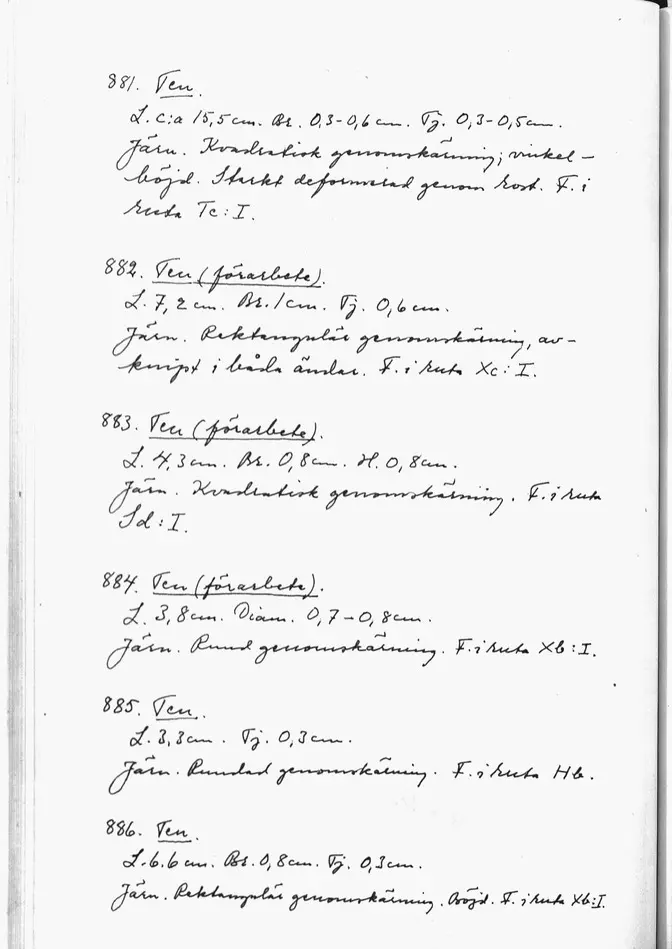 881. Ten.
L. c:a 15,5 cm. Br. 0,3-0,6 cm. Tj. 0,3-0,5 cm.
Järn. Kvadratisk genomskärning; vinkel-
böjd. Starkt deformerad genom rost. F. i
ruta Tc: I.
882. Ten (förarbete).
L. 7,2 cm. Br. 1 cm. Tj. 0,6 cm.
Järn. Rektangulär genomskärning, av-
knipt i båda ändar. F. i ruta Xc: I.
883. Ten (förarbete).
L. 4,3 cm. Br. 0,8 cm. H. 0,8 cm.
Järn. Kvadratisk genomskärning. F. i ruta
Sd: I.
884. Ten (förarbete).
L. 3,8 cm. Diam. 0,7-0,8 cm.
Järn. Rund genomskärning. F. i ruta Xb: I.
885. Ten.
L. 3,3 cm. Tj. 0,3 cm.
Järn. Rundad genomskärning. F. i ruta Hb.
886. Ten.
L. 6.6 cm. Br. 0,8 cm. Tj. 0,3 cm.
Järn. Rektangulär genomskärning. Böjd. F. i ruta Xb: I.